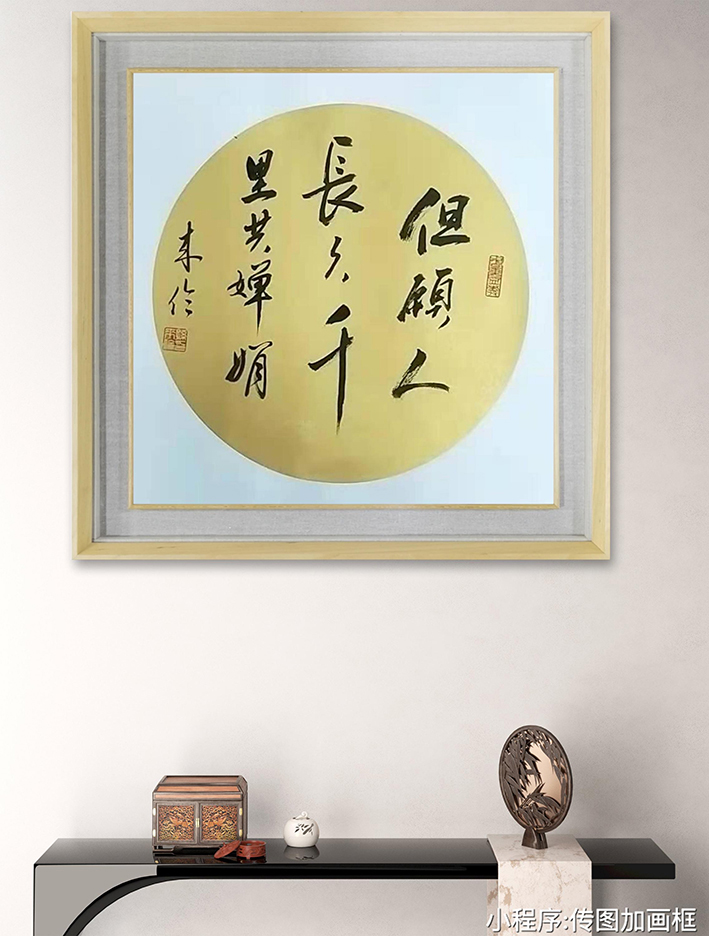 但願人
長久千
里共嬋
娟
来伦
小程序:传图加画框